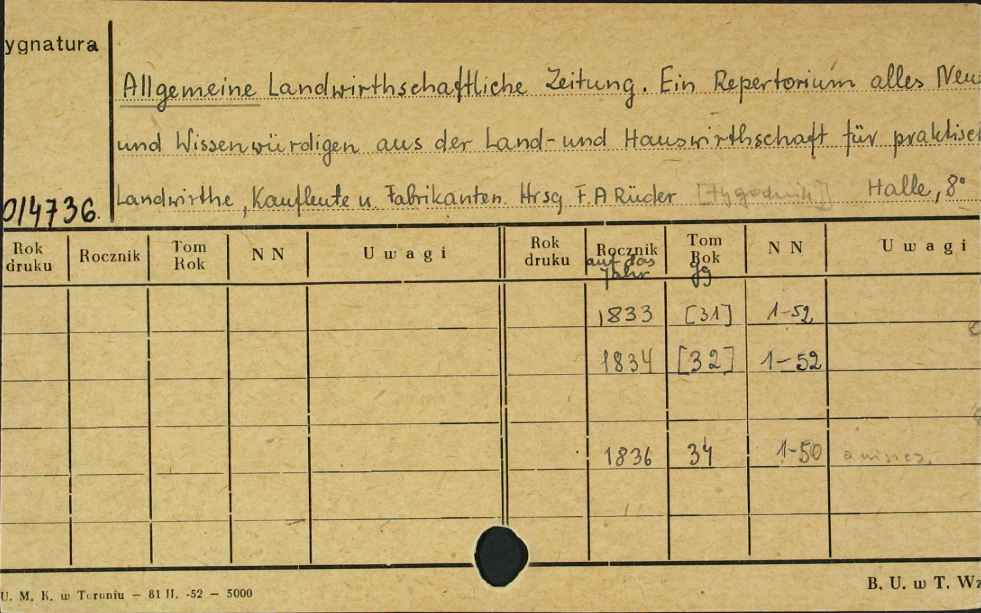 ygnatura
Allgemeine Landwirthschaftliche Zeitung. Ein Repertorium alles Neu
und Wissenwürdigen aus der Land- und Hauswirthschaft für praktisc
014736. Landwirthe, Kaufleute u. Fabrikanten. Hrsg F.A Rüder [tygodnik] Halle, 8°
Rok druku Rocznik Tom Rok N N Uwagi Rok druku Rocznik Tom Rok N N Uwagi
auf das Jahr Jg
1833 [31] 1-52
1834 [32] 1-52
1836 34 1-50
U. M. K. w Toruniu — 81 II. -52 — 5000
B. U. w T. Wz